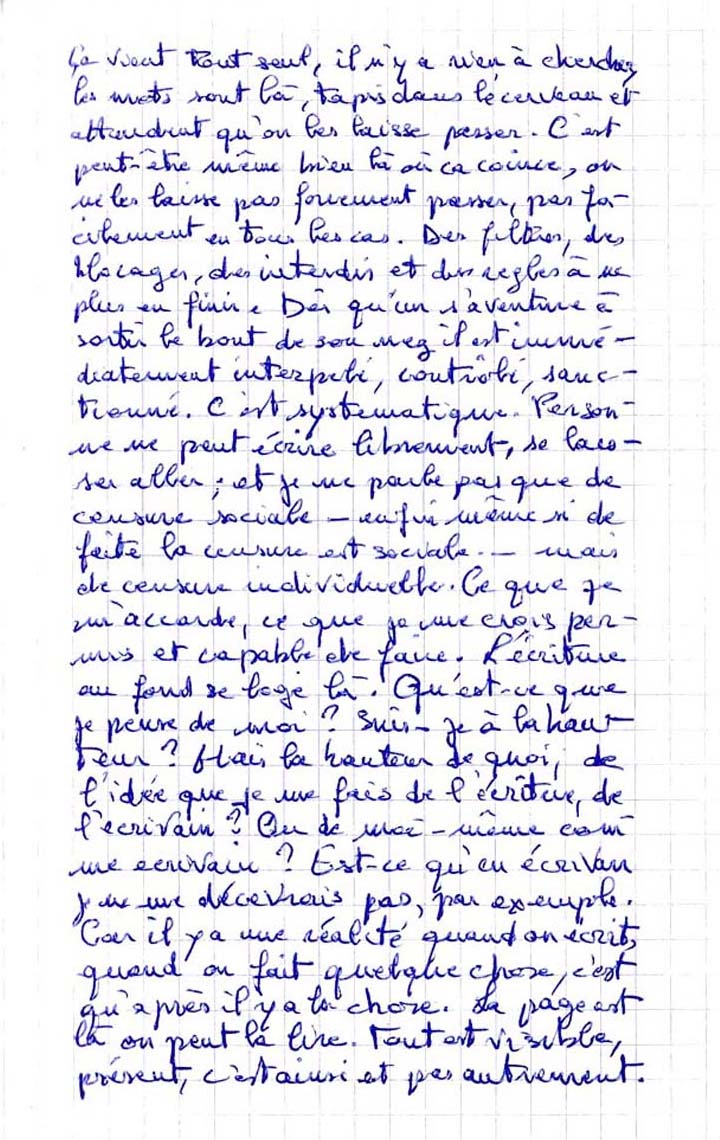 Ça vient tout seul, il n'y a rien à chercher
les mots sont là, tapis dans le cerveau et
attendent qu'on les laisse passer. C'est
peut-être même bien là où ça coince, on
ne les laisse pas forcément passer, pas fa-
cilement en tous les cas. Des filtres, des
blocages, des interdits et des règles à ne
plus en finir. Dès qu'un s'aventure à
sortir le bout de son nez il est immé-
diatement interpelé, contrôlé, sanc-
tionné. C'est systématique. Person-
ne ne peut écrire librement, se lais-
ser aller ; et je ne parle pas que de
censure sociale – enfin même si de
fait la censure est sociale. – mais
de censure individuelle. Ce que je
m'accorde, ce que je me crois per-
mis et capable de faire. L'écriture
au fond se loge là. Qu'est-ce que
je pense de moi ? Suis-je à la hau-
teur ? Mais la hauteur de quoi, de
l'idée que je me fais de l'écriture, de
l'écrivain ? Ou de moi-même com
me écrivain ? Est-ce qu'en écrivan
je ne me décevrais pas, par exemple.
Car il y a une réalité quand on écrit,
quand on fait quelque chose, c'est
qu'après il y a la chose. La page est
là on peut la lire. Tout est visible,
présent, c'est ainsi et pas autrement.